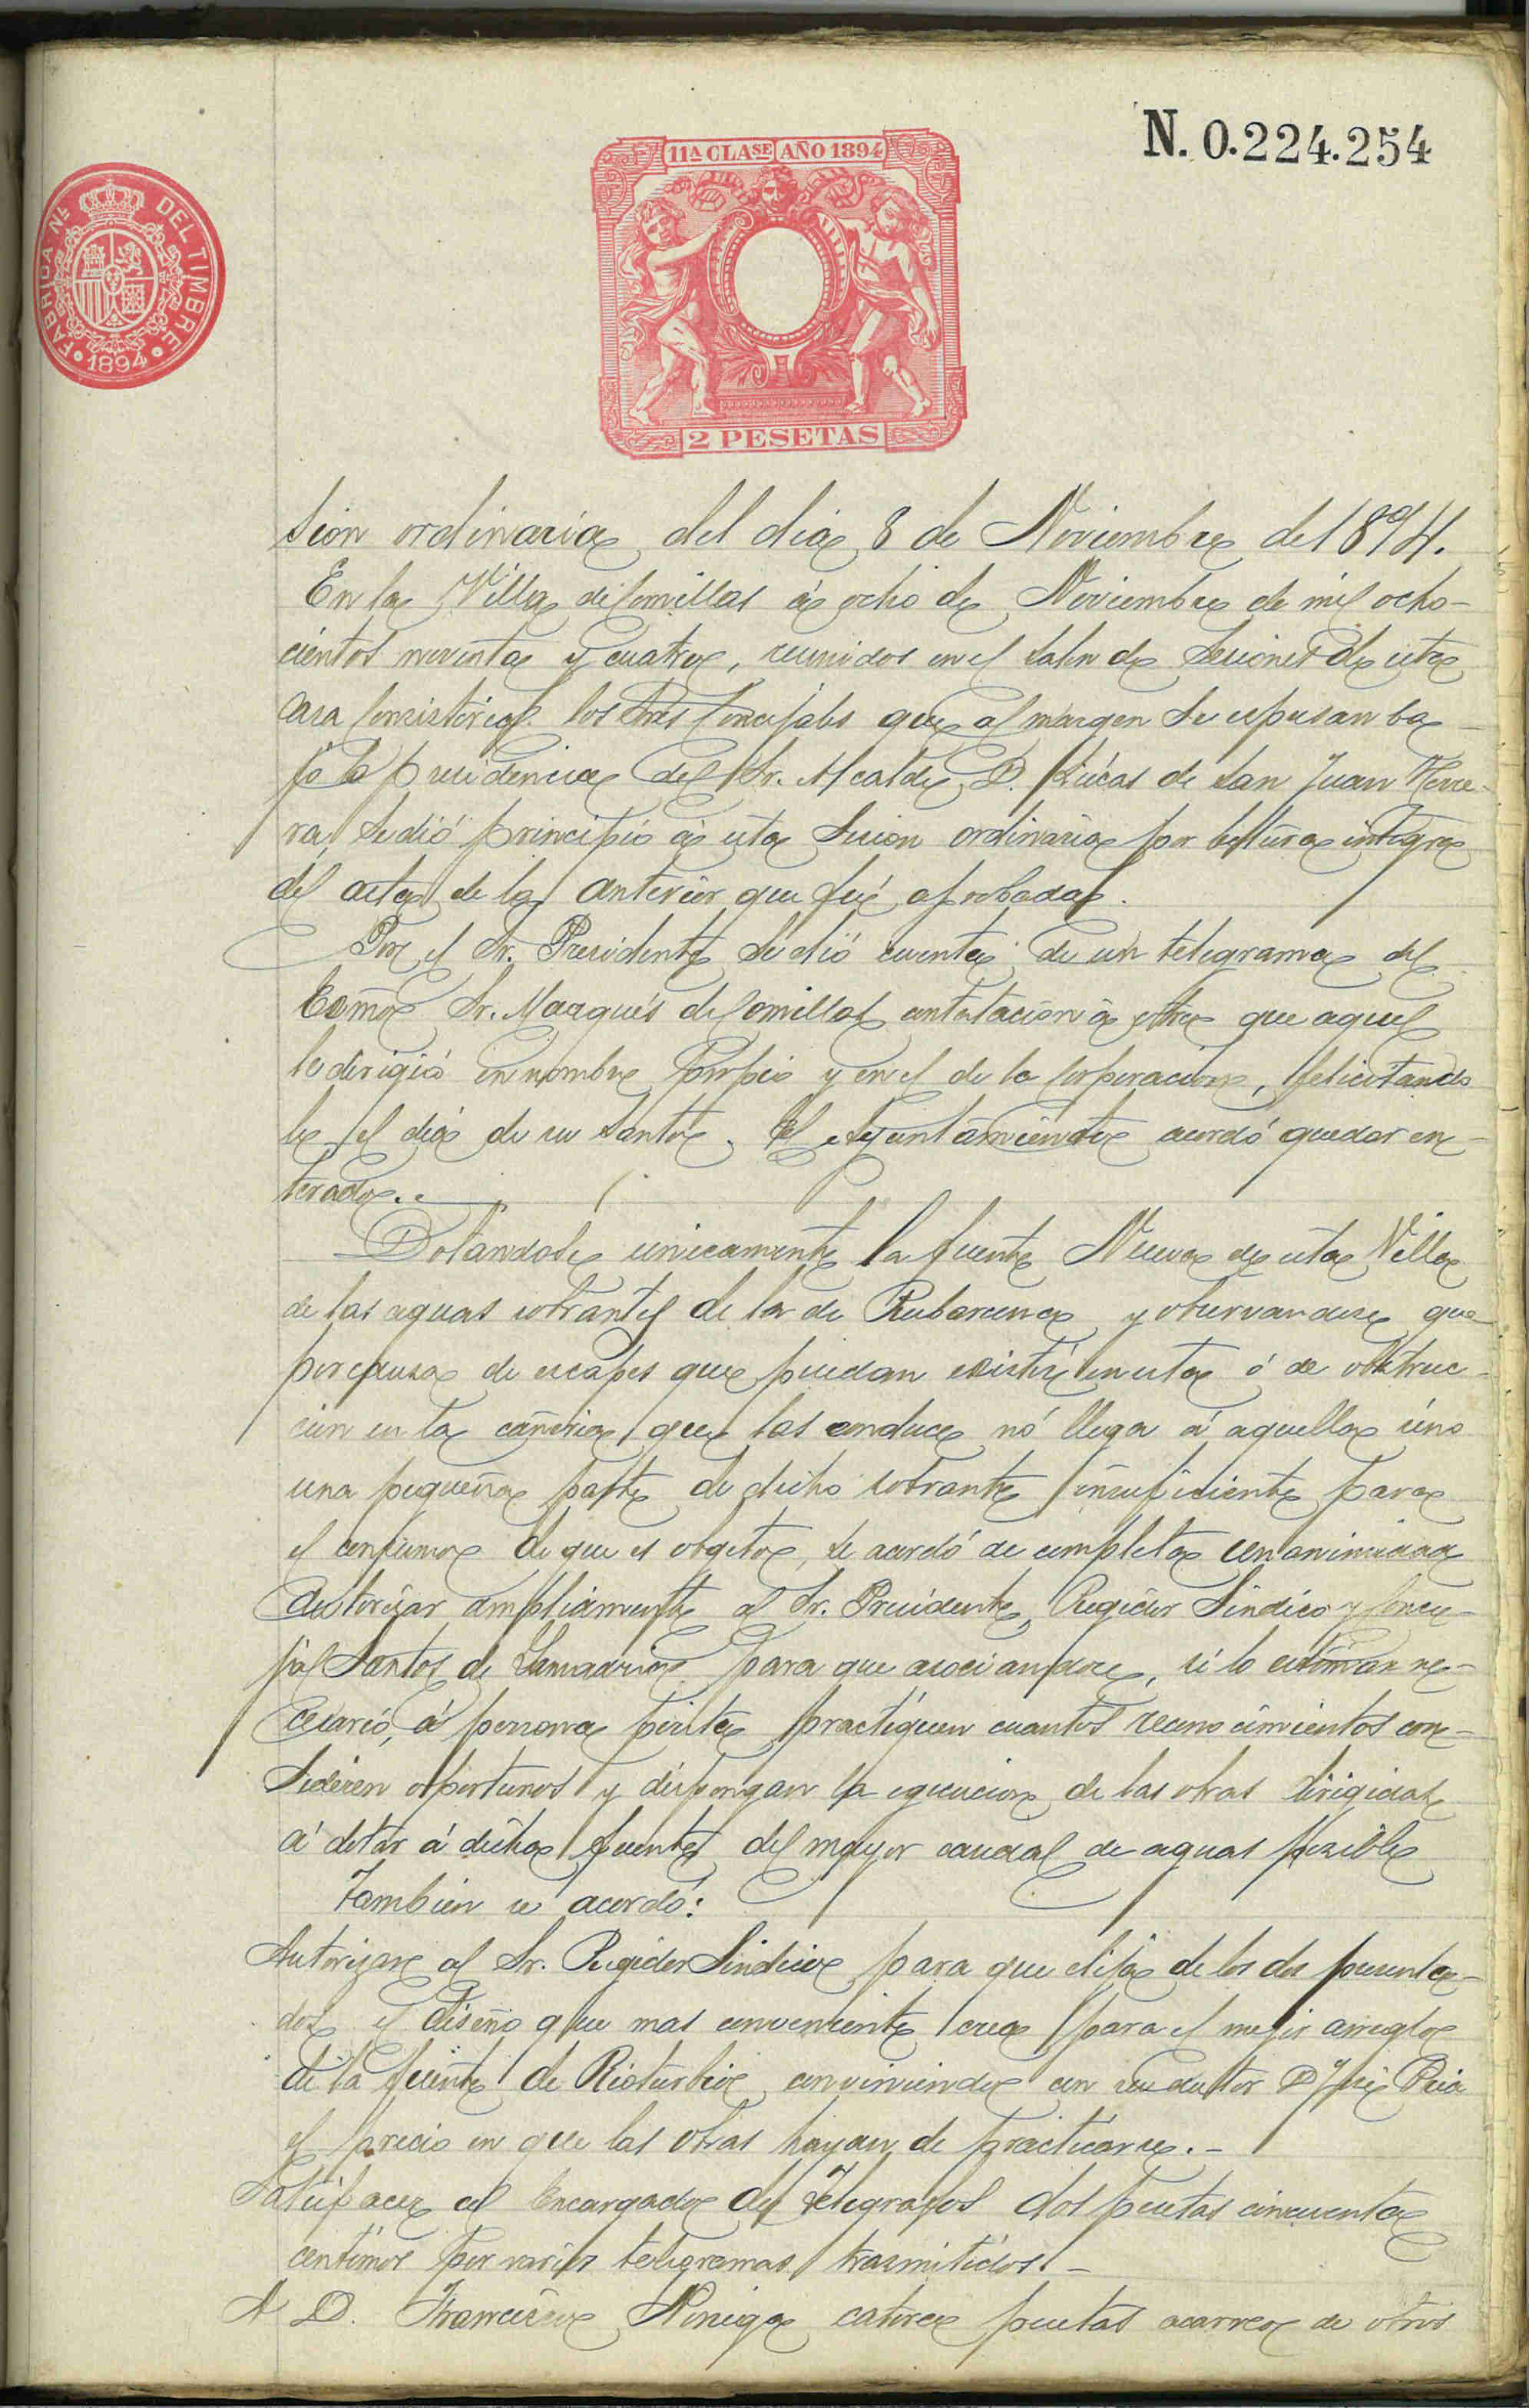 N. 0.224.254
11A CLASE AÑO 1894
FABRICA NL DEL TIMBRE
1894
2 PESETAS
Sion ordinaria del dia 8 de Noviembre de 1894.
En la Villa de Comillas á ocho de Noviembre de mil ocho-
cientos noventa y cuatro, reunidos en el Salon de Sesiones de esta
Casa Consistorial los Sres Concejales que al margen se espresan ba-
jo la presidencia del Sr. Alcalde D. Lúcas de San Juan Herre-
ra, se dió principio á esta Sesion ordinaria por lectura integra
del acta de la anterior que fué aprobada.
Por el Sr. Presidente se dió cuenta de un telegrama del
Excmo Sr. Marqués de Comillas contestacion á otro que aquel
le dirigió en nombre propio y en el de la Corporacion, felicitando
le el dia de su Santo. El Ayuntamiento acordó quedar en-
terado.
Dotándose unicamente la fuente Nueva de esta Villa
de las aguas sobrantes de la de Rubarcena y observandose que
por causa de escapes que puedan existir en esta ó de obstruc-
cion en la cañeria que las conduce nó llega á aquella sino
una pequeña parte de dicho sobrante insuficiente para
el consumo de que es objeto, se acordó de completa unanimidad
autorizar ampliamente al Sr. Presidente, Regidor Sindico y Conce-
jal Santos de Lamadrid para que asociandose, si lo estiman ne-
cesario, á persona perita practiquen cuantos reconocimientos con-
sideren oportunos y dispongan la egecucion de las obras dirigidas
á dotar á dicha fuente del mayor caudal de aguas posible
Tambien se acordó:
Autorizar al Sr. Regidor Sindico para que elija de los dos presenta-
dos el diseño que mas conveniente crea para el mejor arreglo
de la fuente de Rioturbio conviniendo con su autor D. José Pria
el precio en que las obras hayan de practicarse.-
Satisfacer al Encargado de Telegrafos dos pesetas cincuenta
centimos por varios telegramas trasmitidos.-
A D. Francisco Noriega catorce pesetas acarreo de otros